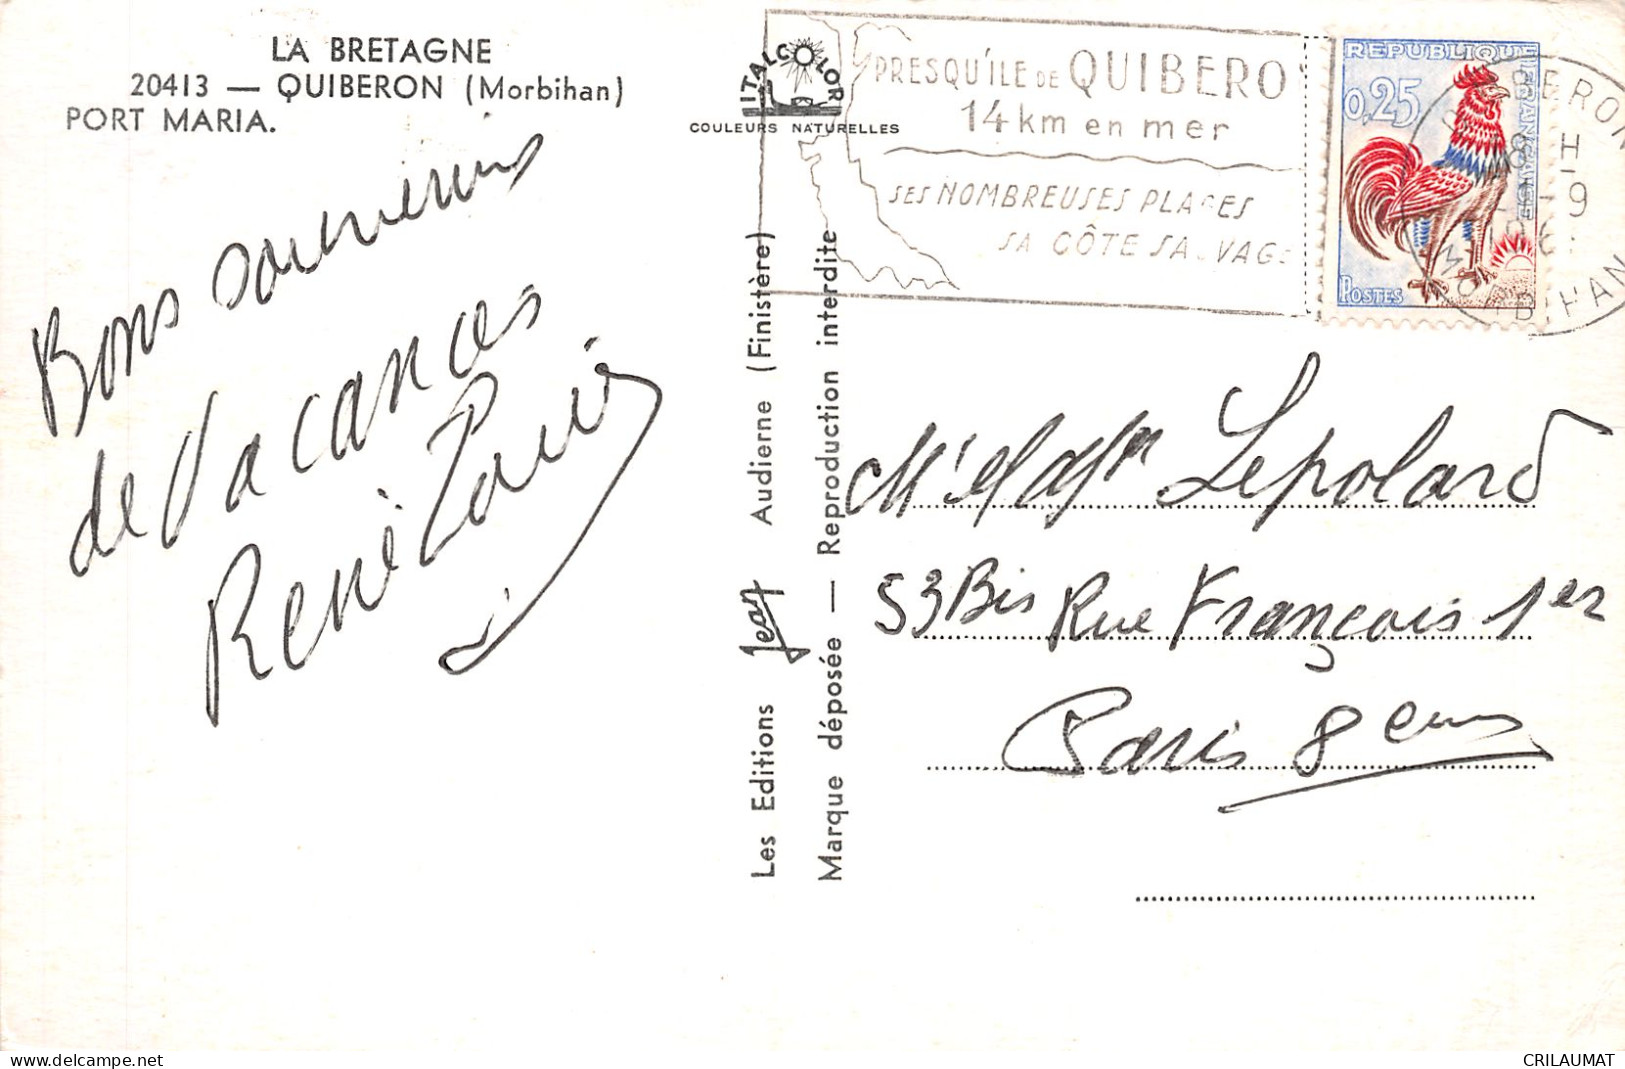 LA BRETAGNE
20413 — QUIBERON (Morbihan)
PORT MARIA.
Bons souvenirs
de Vacances
René
ITALCOLOR
COULEURS NATURELLES
PRESQU'ILE DE QUIBERO
14 km en mer
SES NOMBREUSES PLAGES
SA CÔTE SAUVAGE
REPUBLIQUE FRANÇAISE
0,25
POSTES
Les Editions Jean Audierne (Finistère)
Marque déposée — Reproduction interdite
Lepolard
53 Bis Rue François 1er
Paris 8eme
CRILAUMAT